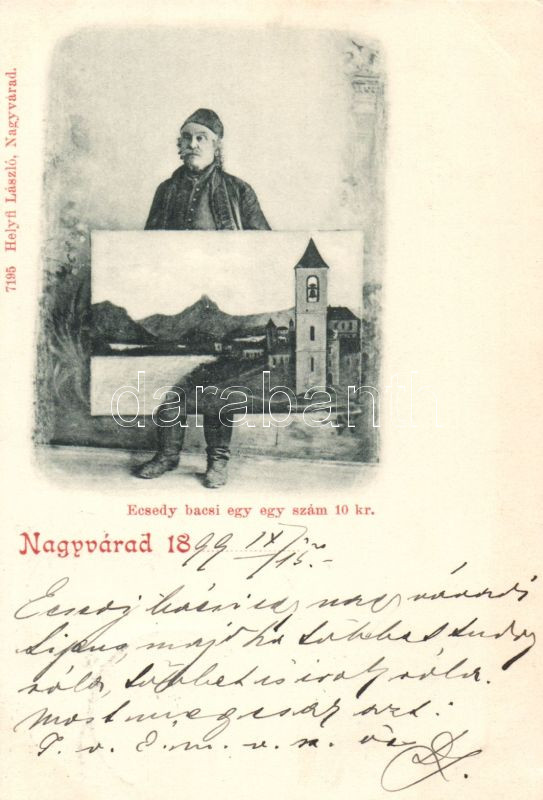 7195 Helyfi László, Nagyvárad.
darabanth
Ecsedy bacsi egy egy szám 10 kr.
Nagyvárad 1899 IX/15.
Ecsedy bácsi egy nagyváradi
tipus, majd ha többet tudok
róla, többet is irok róla.
Most megcsak ezt:
T. v. E. m. v. n.